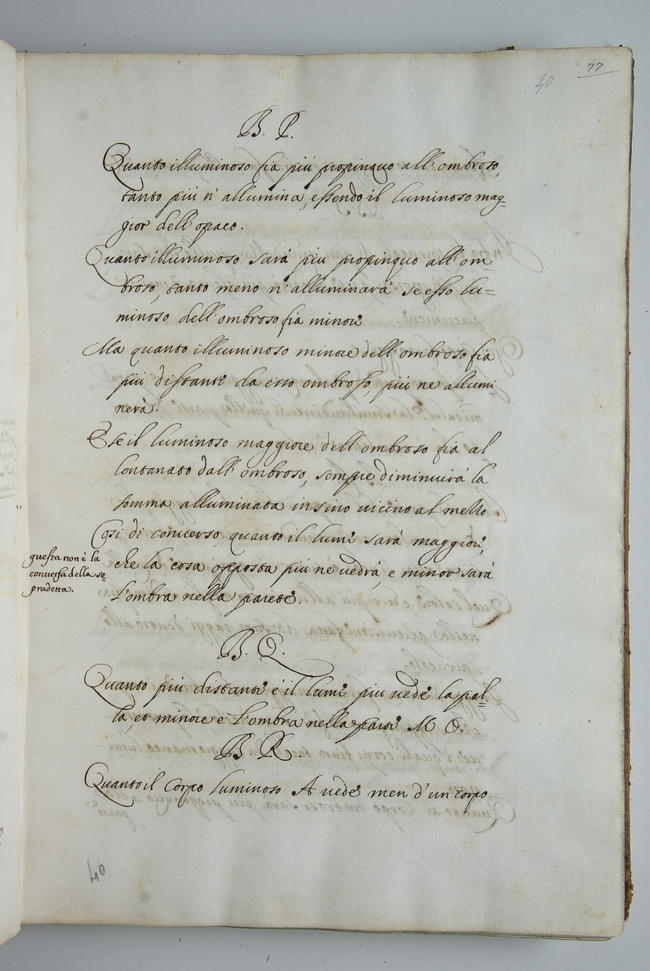 77
40
B. P.
Quanto illuminoso fia più propinquo all'ombroso,
tanto più n'allumina, essendo il luminoso mag=
gior dell'opaco.
Quanto illuminoso sarà più propinquo all'om
broso, tanto meno n'alluminarà se esso lu=
minoso dell'ombroso fia minore
Ma quanto illuminoso minore dell'ombroso fia
più distante da esso ombroso, più ne allumi
nerà.
E se il luminoso maggiore dell'ombroso fia al
lontanato dall'ombroso, sempre diminuirà la
somma alluminata insino vicino al mezzo
Così di converso, quanto il lume sarà maggiore,
che la cosa opposta più ne vedrà, e minor sarà
l'ombra nella parete.
questa non è la
conversa della so
pradetta.
B. Q.
Quanto più distante è il lume più vede la pal=
la, et minore è l'ombra nella parete M O.
B. R.
Quanto il Corpo luminoso A vede men d'un corpo
40